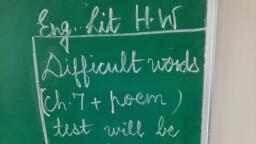 Eng. Lit H.W
Difficult words
(Ch.7 + poem)
test will be